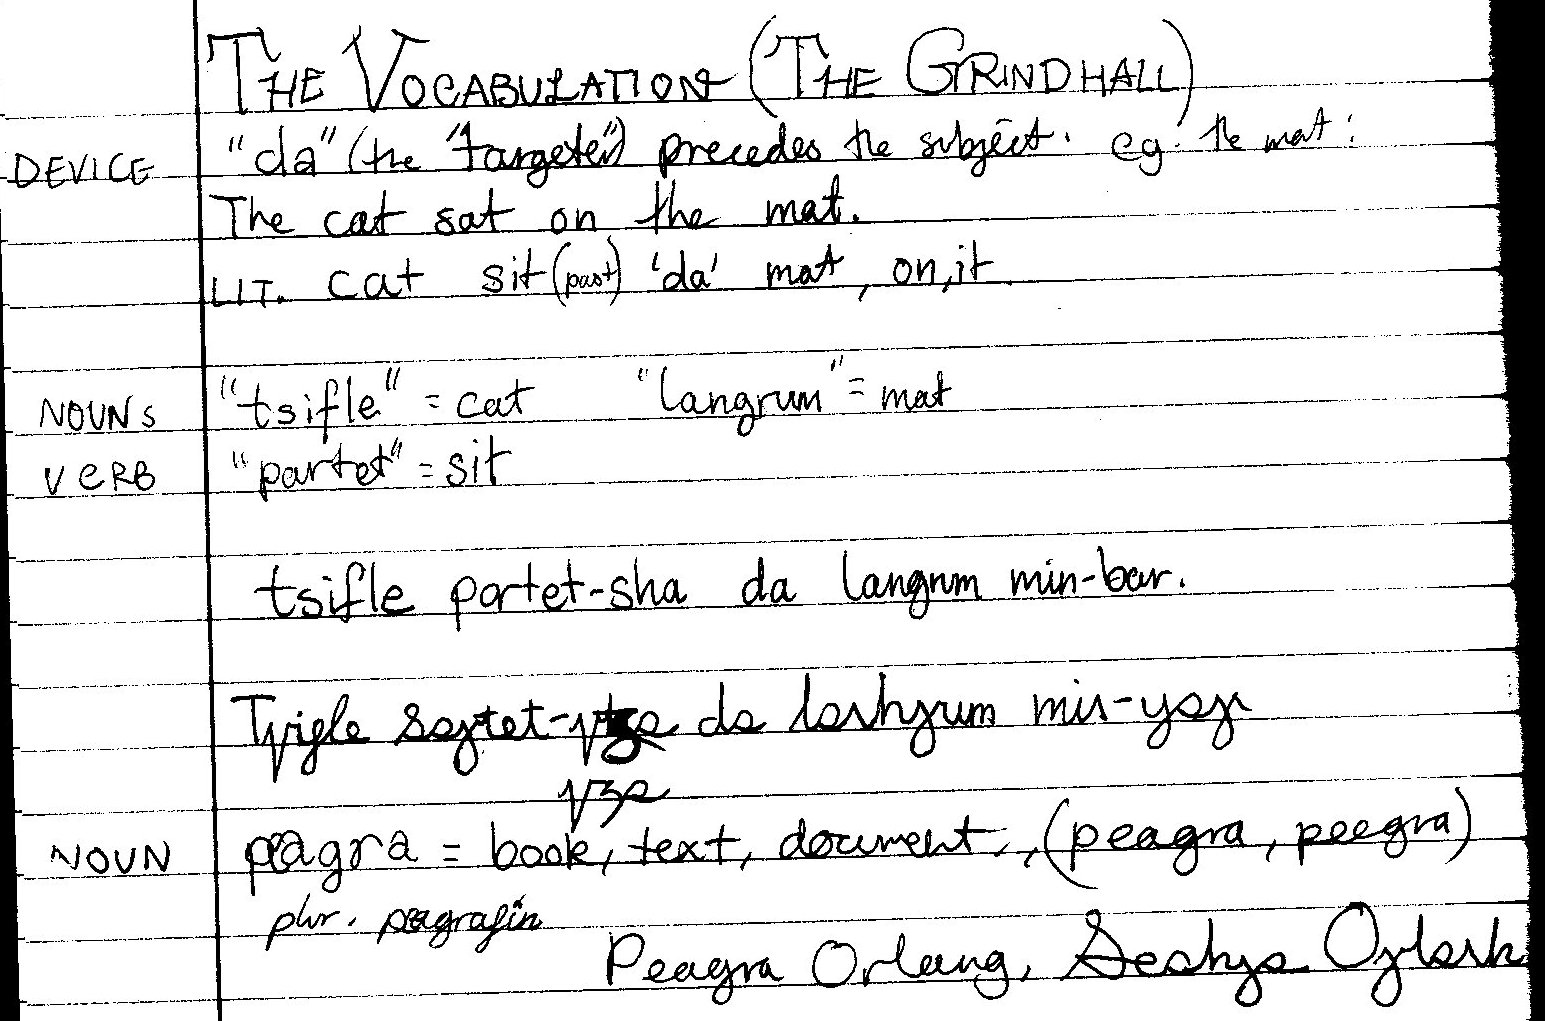 THE VOCABULATION (THE GRINDHALL)
DEVICE "da" (the "targeter") precedes the subject. eg. the mat:
The cat sat on the mat.
LIT. cat sit (past) 'da' mat, on, it
NOUNS "tsifle" = cat "langrum" = mat
VERB "partet" = sit
tsifle partet-sha da langrum min-bar.
da
NOUN peagra = book, text, document, (peagra, peegra)
plur. peagrafin
Peagra Orlang,